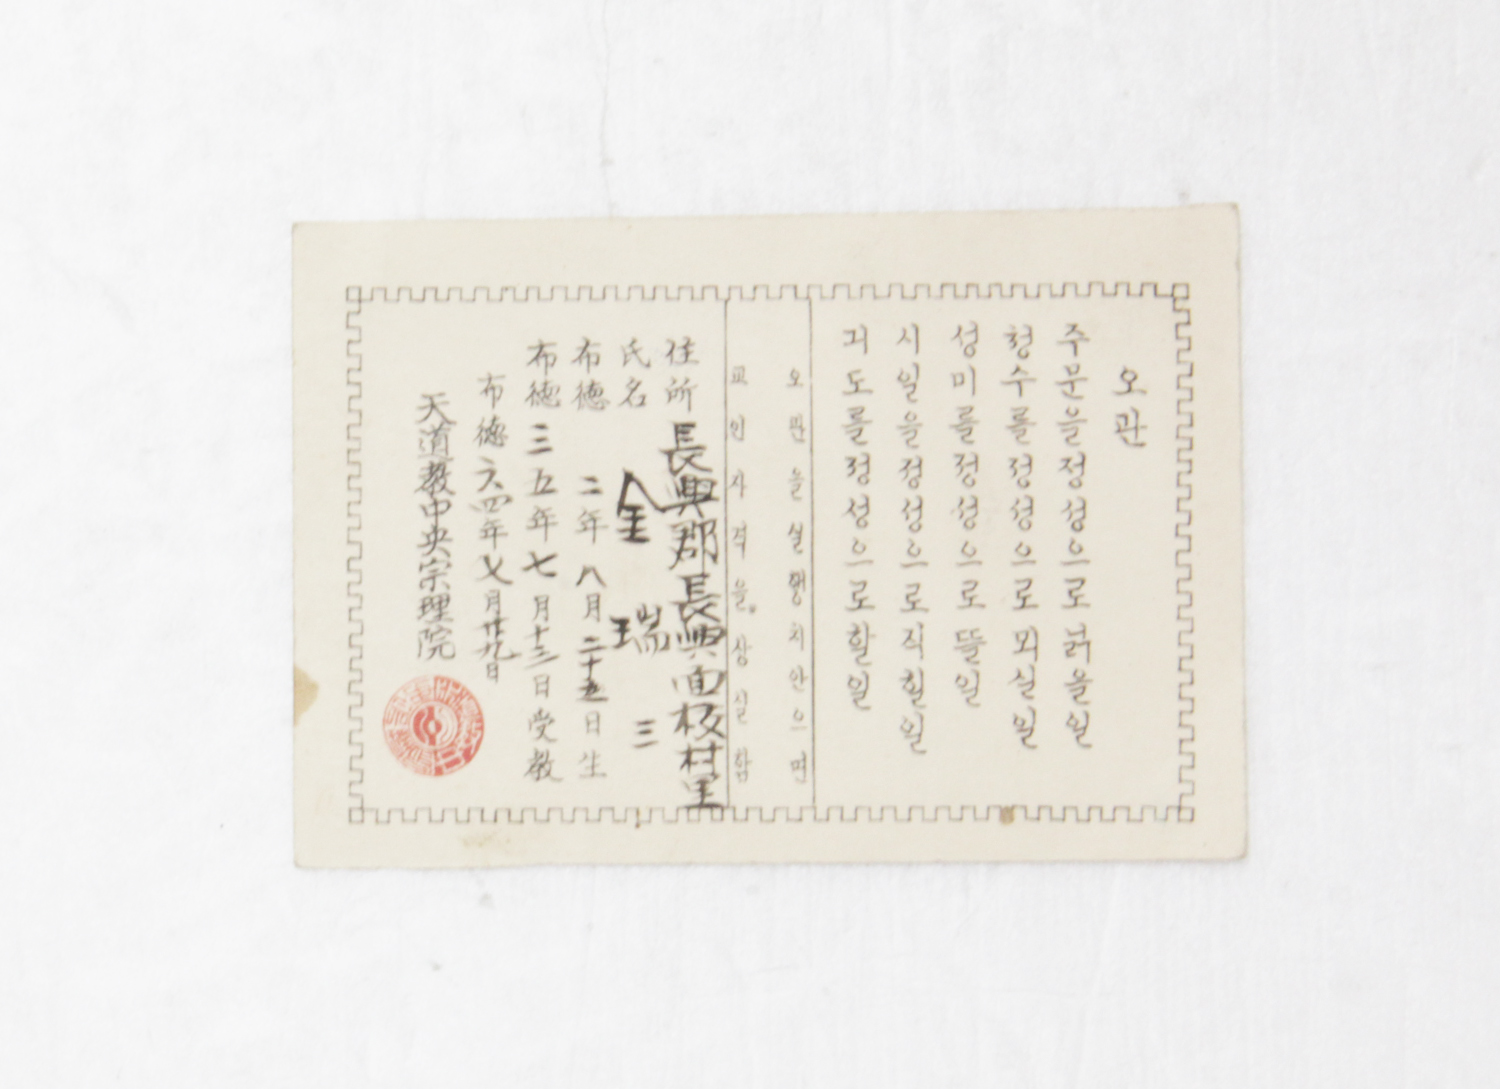 오관
주문을정성으로읽을일
청수를정성으로뫼실일
성미를정성으로뜰일
시일을정성으로직힐일
긔도를정성으로할일
오관을실행치안으면
교인자격을상실함
住所 長興郡長興面板村里
氏名 金瑞三
布德二年八月二十五日生
布德三五年七月十三日受教
布德六四年七月廿九日
天道教中央宗理院